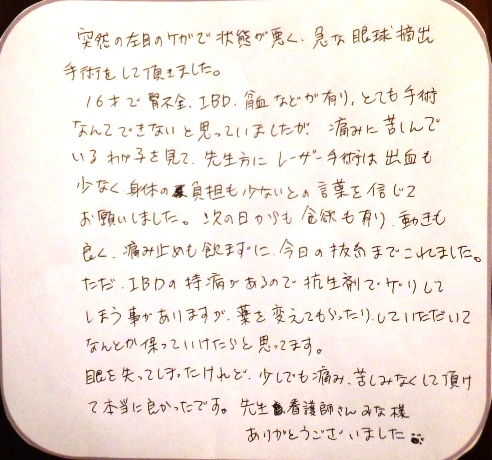 突然の左目のケガで状態が悪く、急な眼球摘出
手術をして頂きました。
16才で腎不全、IBD、貧血などが有り、とても手術
なんてできないと思っていましたが、痛みに苦しんで
いるわが子を見て、先生方にレーザー手術は出血も
少なく、身体の負担も少ないとの言葉を信じて
お願いしました。次の日からも食欲も有り、動きも
良く、痛み止めも飲まずに、今日の抜糸までこれました。
ただ、IBDの持病があるので抗生剤でゲリして
しまう事がありますが、薬を変えてもらったり、していただいて
なんとか保っていけたらと思ってます。
眼を失ってしまったけれど、少しでも痛み、苦しみなくして頂け
て本当に良かったです。先生、看護師さんみな様
ありがとうございました